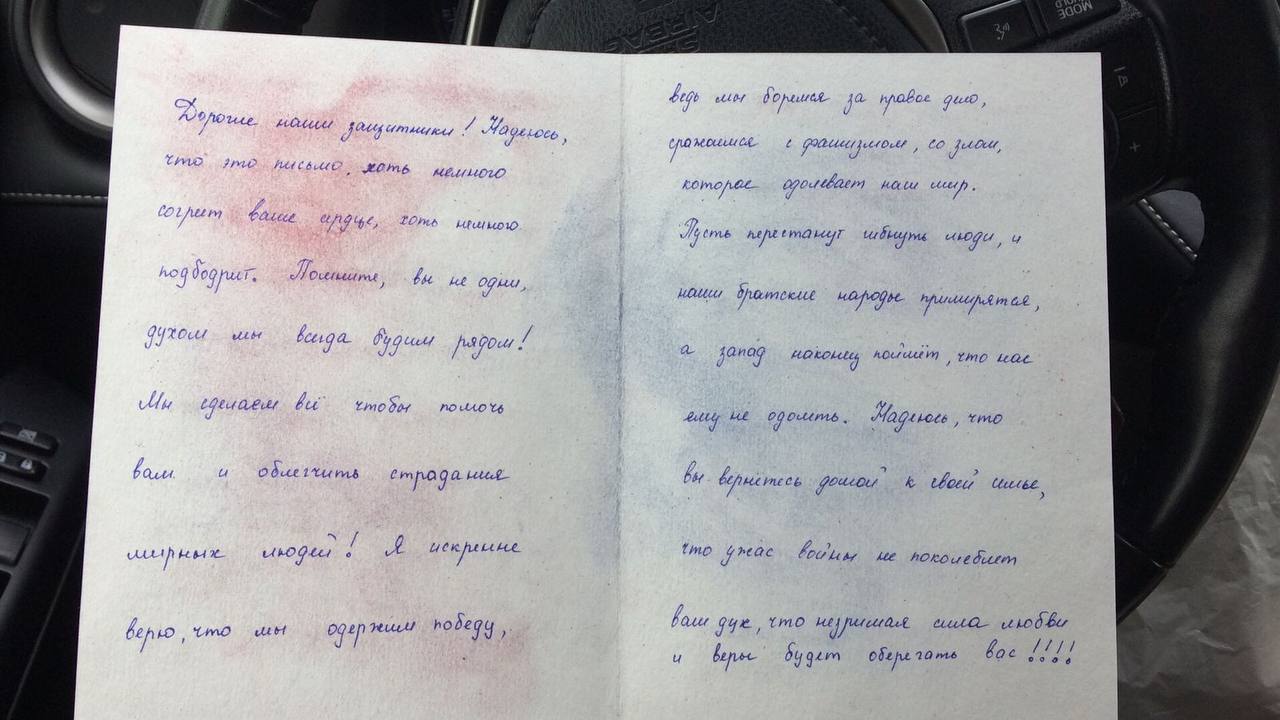 SRS
AIRBAG
MODE
HOLD
Дорогие наши защитники! Надеюсь,
что это письмо, хоть немного
согреет ваше сердце, хоть немного
подбодрит. Помните, вы не одни,
духом мы всегда будим рядом!
Мы сделаем всё чтобы помочь
вам и облегчить страдания
мирных людей! Я искренне
верю, что мы одержим победу,
ведь мы боремся за правое дело,
сражаимся с фашизмом, со злом,
которое одолевает наш мир.
Пусть перестанут гибнуть люди, и
наши братские народы примирятся,
а запад наконец поймёт, что нас
ему не одолеть. Надеюсь, что
вы вернетесь домой к своей семье,
что ужас войны не поколеблет
ваш дух, что незримая сила любви
и веры будет оберегать вас!!!!